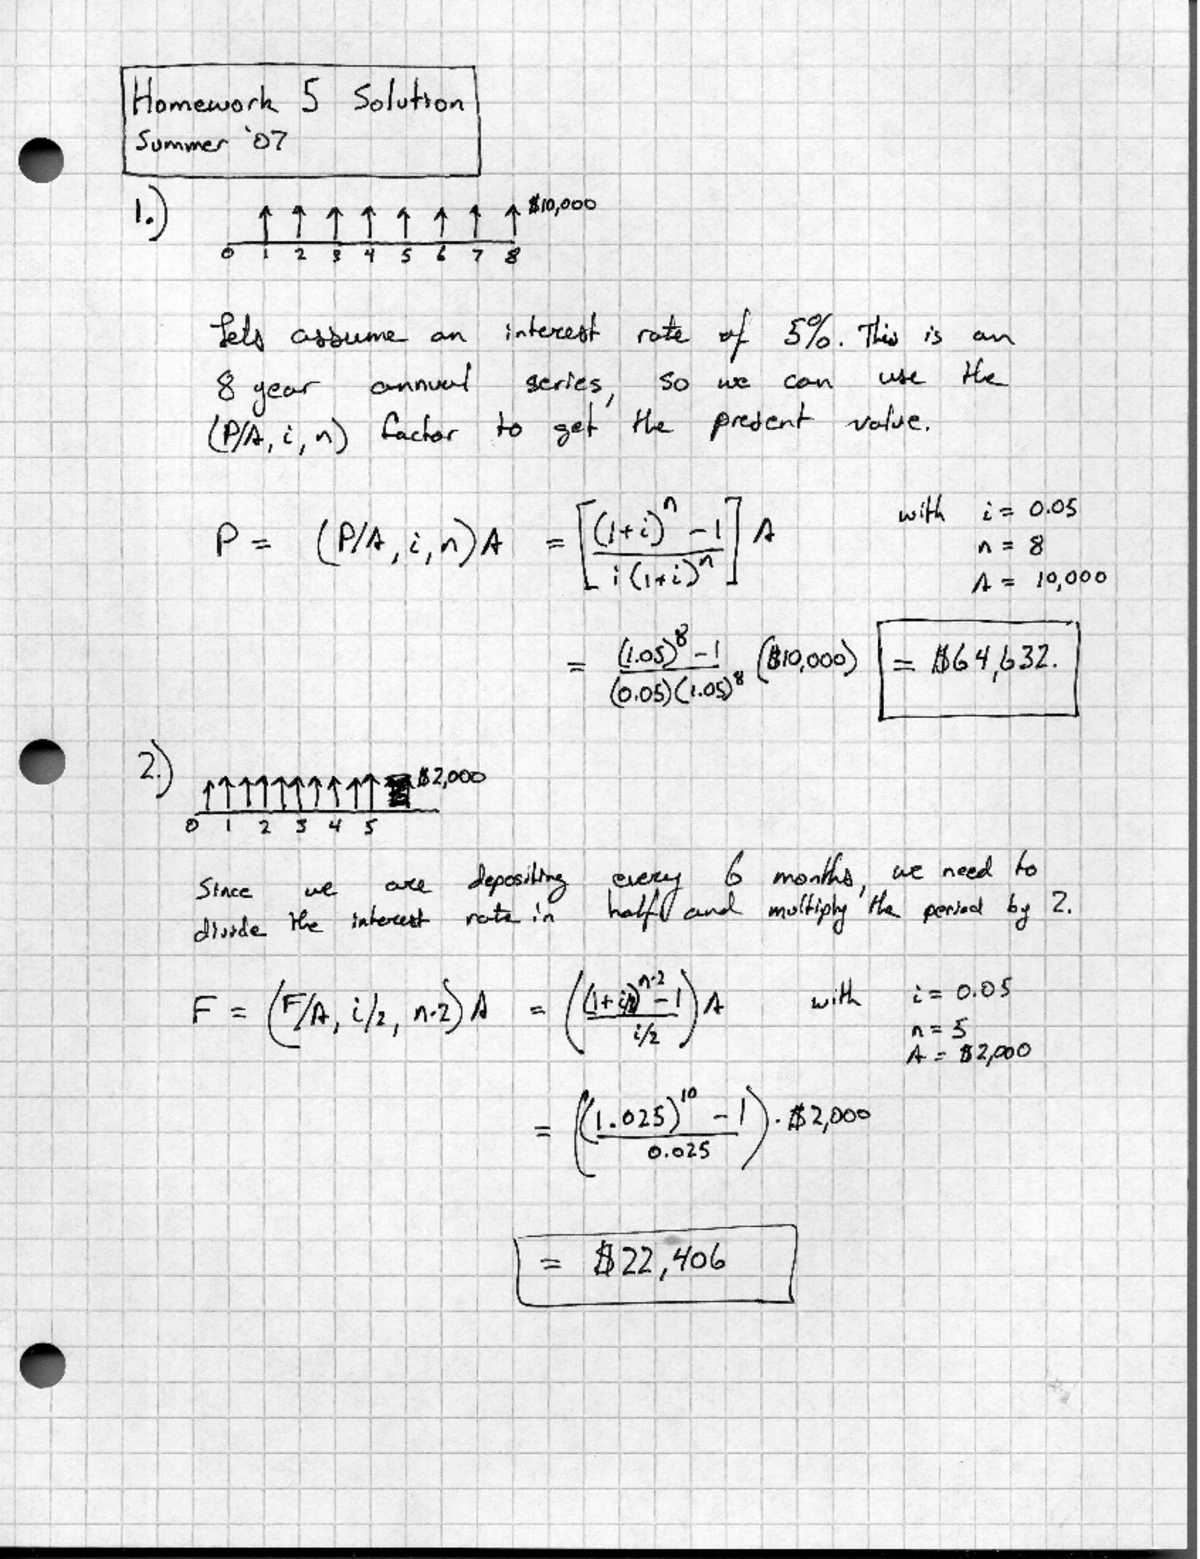 Homework 5 Solution
Summer '07
1.)
$10,000
0 1 2 3 4 5 6 7 8
Lets assume an interest rate of 5%. This is an
8 year annual series, so we can use the
(P/A, i, n) factor to get the present value.
P = (P/A, i, n) A = [((1+i)^n - 1) / (i(1+i)^n)] A
with i = 0.05
n = 8
A = 10,000
= ((1.05)^8 - 1) / ((0.05)(1.05)^8) ($10,000) = $64,632.
2.)
$2,000
0 1 2 3 4 5
Since we are depositing every 6 months, we need to
divide the interest rate in half and multiply the period by 2.
F = (F/A, i/2, n·2) A = (((1+i/2)^n·2 - 1) / (i/2)) A
with i = 0.05
n = 5
A = $2,000
= (((1.025)^10 - 1) / 0.025) · $2,000
= $22,406